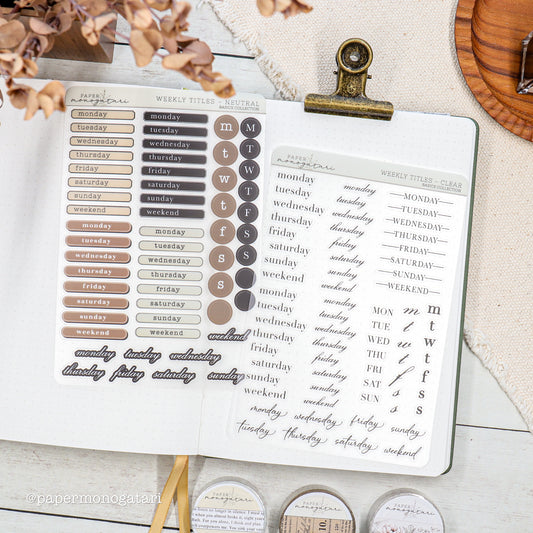 PAPER
monogatari
WEEKLY TITLES - NEUTRAL
BASICS COLLECTION
monday
tuesday
wednesday
thursday
friday
saturday
sunday
weekend
monday
tuesday
wednesday
thursday
friday
saturday
sunday
weekend
monday
tuesday
wednesday
thursday
friday
saturday
sunday
weekend
monday
tuesday
wednesday
thursday
friday
saturday
sunday
weekend
m
t
w
t
f
s
s
M
T
W
T
F
S
S
weekend
monday tuesday wednesday
thursday friday saturday sunday
PAPER
monogatari
WEEKLY TITLES - CLEAR
BASICS COLLECTION
monday
tuesday
wednesday
thursday
friday
saturday
sunday
weekend
monday
tuesday
wednesday
thursday
friday
saturday
sunday
weekend
monday
tuesday
wednesday
thursday
friday
saturday
sunday
weekend
monday
tuesday
wednesday
thursday
friday
saturday
sunday
weekend
MONDAY
TUESDAY
WEDNESDAY
THURSDAY
FRIDAY
SATURDAY
SUNDAY
WEEKEND
MON
TUE
WED
THU
FRI
SAT
SUN
m
t
w
t
f
s
s
m
t
w
t
f
s
s
monday wednesday friday sunday
tuesday thursday saturday weekend
@papermonogatari
PAPER
monogatari
PAPER
monogatari
PAPER
monogatari